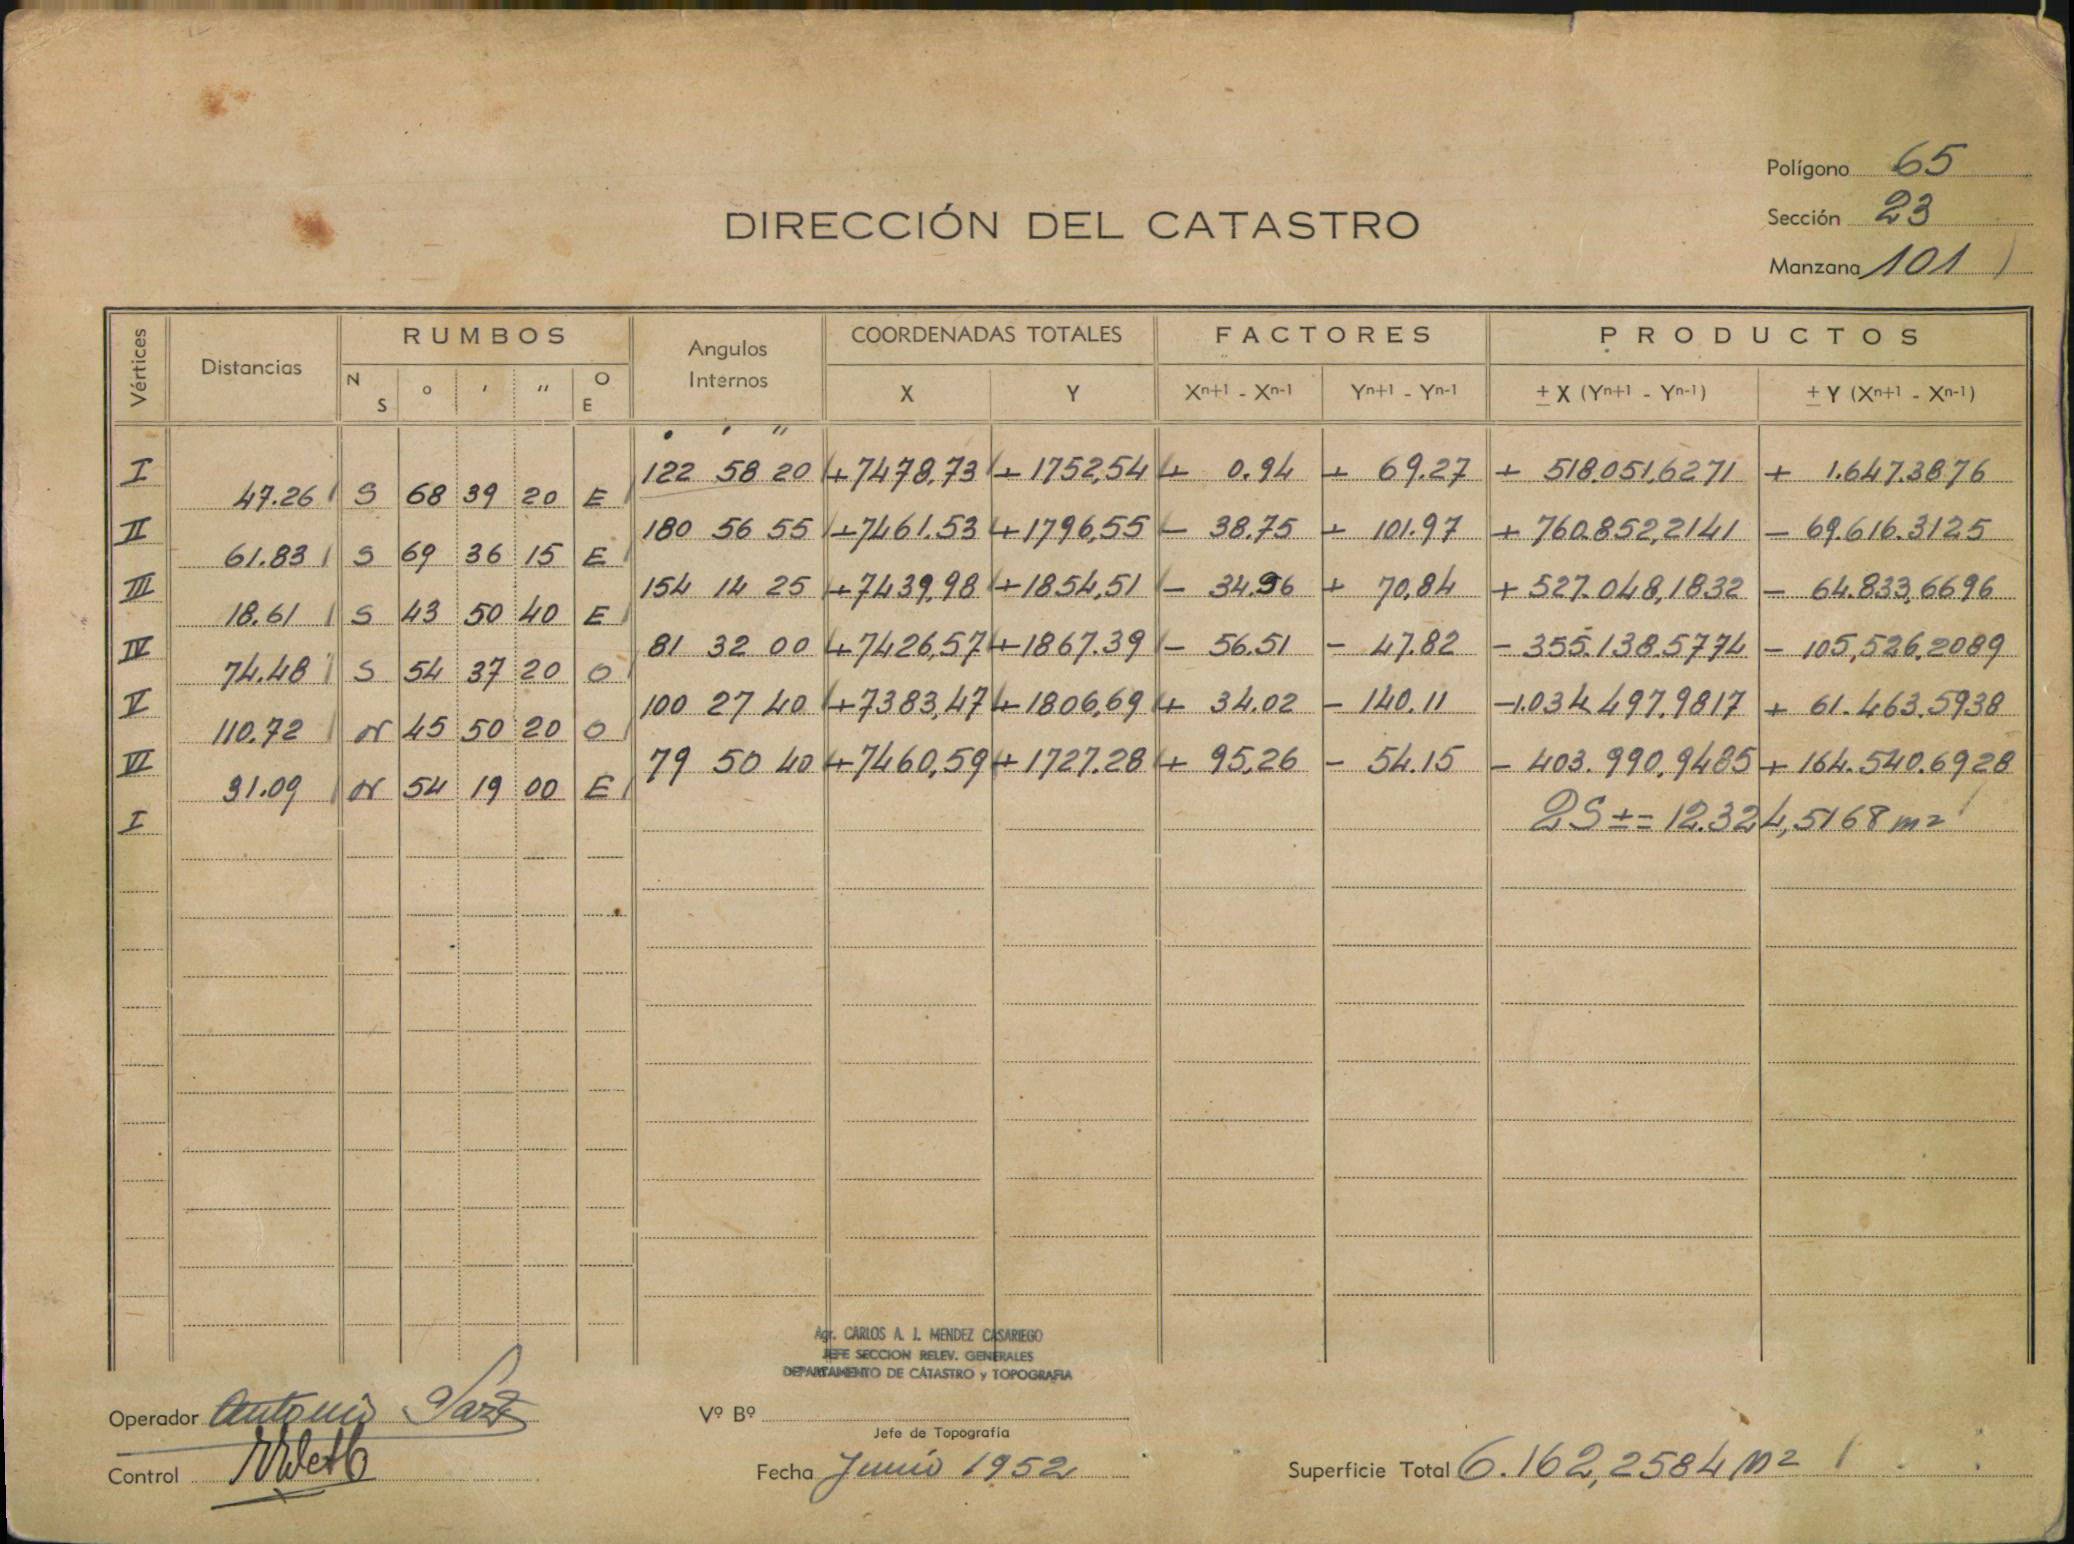 Polígono 65
Sección 23
Manzana 101
DIRECCIÓN DEL CATASTRO
Vértices Distancias RUMBOS Angulos Internos COORDENADAS TOTALES FACTORES PRODUCTOS
N S o ' " O E X Y Xn+1 - Xn-1 Yn+1 - Yn-1 ± X (Yn+1 - Yn-1) ± Y (Xn+1 - Xn-1)
° ' "
I 122 58 20 +7478,73 +1752,54 + 0.94 + 69.27 + 518.051,6271 + 1.647.3876
47.26 S 68 39 20 E
II 180 56 55 +7461.53 +1796,55 - 38.75 + 101.97 + 760.852,2141 - 69.616.3125
61.83 S 69 36 15 E
III 154 14 25 +7439,98 +1854,51 - 34.96 + 70,84 + 527.048,1832 - 64.833,6696
18.61 S 43 50 40 E
IV 81 32 00 +7426,57 +1867.39 - 56.51 - 47.82 - 355.138.5774 - 105,526.2089
74.48 S 54 37 20 O
V 100 27 40 +7383,47 +1806,69 + 34.02 - 140.11 -1.034.497.9817 + 61.463.5938
110.72 N 45 50 20 O
VI 79 50 40 +7460,59 +1727.28 + 95,26 - 54.15 - 403.990,9485 + 164.540.6928
31.09 N 54 19 00 E
I 2S ± = 12.324,5168 m2
Agr. CARLOS A. J. MENDEZ CASARIEGO
JEFE SECCION RELEV. GENERALES
DEPARTAMENTO DE CATASTRO y TOPOGRAFIA
Operador Antonio
Vº Bº
Jefe de Topografía
Control
Fecha Junio 1952
Superficie Total 6.162,2584 m2